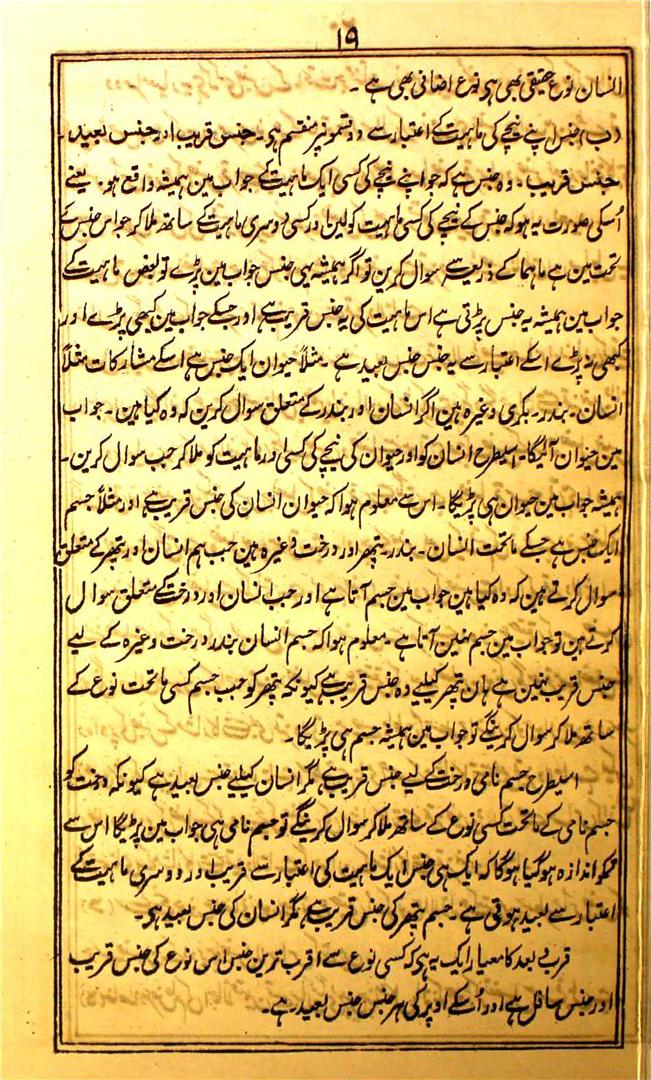 ١٩
انسان نوع حقیقی بھی ہی نوع اضافی بھی ہے ۔
(ب) جنس اپنے نیچے کی ماہیت کے اعتبار سے دو قسمونپر منقسم ہو ۔ جنس قریب اور جنس بعید ۔
جنس قریب ۔ وہ جنس ہے کہ جو اپنے نیچے کی کسی ایک ماہیت کے جواب مین ہمیشہ واقع ہو ۔ یعنے
اُسکی صورت یہ ہو کہ جنس کے نیچے کی کسی ماہیت کو لین اور کسی دوسری ماہیت کے ساتھ ملا کر جو اس جنس کے
تحت مین ہے ماہما کے ذریعہ سے سوال کرین تو اگر ہمیشہ یہی جنس جواب مین پڑے تو جس ماہیت کے
جواب مین ہمیشہ یہ جنس پڑتی ہے اس ماہیت کی یہ جنس قریب ہے اور جسکے جواب مین کبھی پڑے اور
کبھی نہ پڑے اسکے اعتبار سے یہ جنس جنس بعید ہے ۔ مثلاً حیوان ایک جنس ہے اسکے مشارکات مثلاً
انسان ۔ بندر ۔ بکری وغیرہ ہین اگر انسان اور بندر کے متعلق سوال کرین کہ وہ کیا ہین ۔ جواب
مین حیوان آئیگا ۔ اسیطرح انسان کو اور حیوان کی نیچے کی کسی اور ماہیت کو ملا کر جب سوال کرین ۔
ہمیشہ جواب مین حیوان ہی پڑیگا ۔ اس سے معلوم ہوا کہ حیوان انسان کی جنس قریب ہے اور مثلاً جسم
ایک جنس ہے جسکے ماتحت انسان ۔ بندر ۔ پتھر اور درخت وغیرہ ہین جب ہم انسان اور پتھر کے متعلق
سوال کرتے ہین کہ وہ کیا ہین جواب مین جسم آتا ہے اور جب انسان اور درخت کے متعلق سوال
کرتے ہین تو جواب مین جسم نہین آتا ہے ۔ معلوم ہوا کہ جسم انسان بندر درخت وغیرہ کے لیے
جنس قریب نہین ہے ہان پتھر کیلیے وہ جنس قریب ہے کیونکہ پتھر کو جب جسم کسی ماتحت نوع کے
ساتھ ملا کر سوال کرینگے تو جواب مین ہمیشہ جسم ہی پڑیگا ۔
اسیطرح جسم نامی درخت کے لیے جنس قریب ہے مگر انسان کیلیے جنس بعید ہے کیونکہ درخت کو
جسم نامی کے ماتحت کسی نوع کے ساتھ ملا کر سوال کرینگے تو جسم نامی ہی جواب مین پڑیگا اس سے
تمکو اندازہ ہو گیا ہوگا کہ ایک ہی جنس ایک ماہیت کی اعتبار سے قریب اور دوسری ماہیت کے
اعتبار سے بعید ہوتی ہے ۔ جسم پتھر کی جنس قریب ہے مگر انسان کی جنس بعید ہو ۔
قرب بعد کا معیار ایک یہ ہی کہ کسی نوع سے اقرب ترین جنس اس نوع کی جنس قریب
اور جنس سافل ہے اور اُسکے اوپر کی ہر جنس جنس بعید ہے ۔